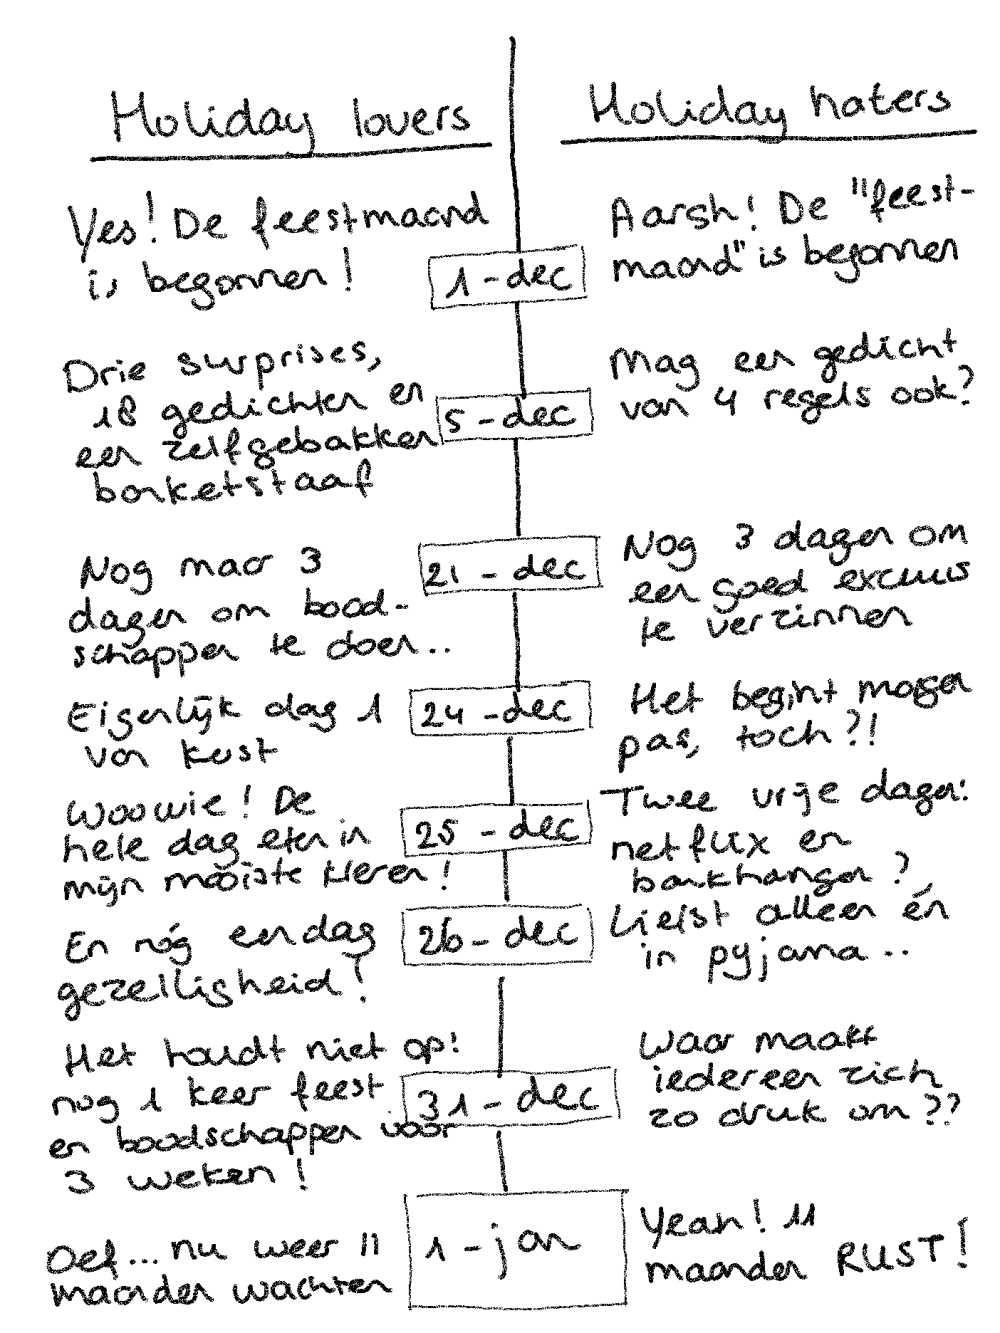 Holiday lovers
Holiday haters
Yes! De feestmaand
is begonnen!
1-dec
Aargh! De "feest-
maand" is begonnen
Drie surprises,
18 gedichten en
een zelfgebakken
banketstaaf
5-dec
Mag een gedicht
van 4 regels ook?
Nog maar 3
dagen om bood-
schappen te doen..
21-dec
Nog 3 dagen om
een goed excuus
te verzinnen
Eigenlijk dag 1
van kerst
24-dec
Het begint morgen
pas, toch?!
Woowie! De
hele dag eten in
mijn mooiste kleren!
25-dec
Twee vrije dagen:
netflix en
bankhangen?
En nóg een dag
gezelligheid!
26-dec
Liefst alleen én
in pyjama..
Het houdt niet op!
nog 1 keer feest
en boodschappen voor
3 weken!
31-dec
Waar maakt
iedereen zich
zo druk om??
Oef... nu weer 11
maanden wachten
1-jan
Yeah! 11
maanden RUST!